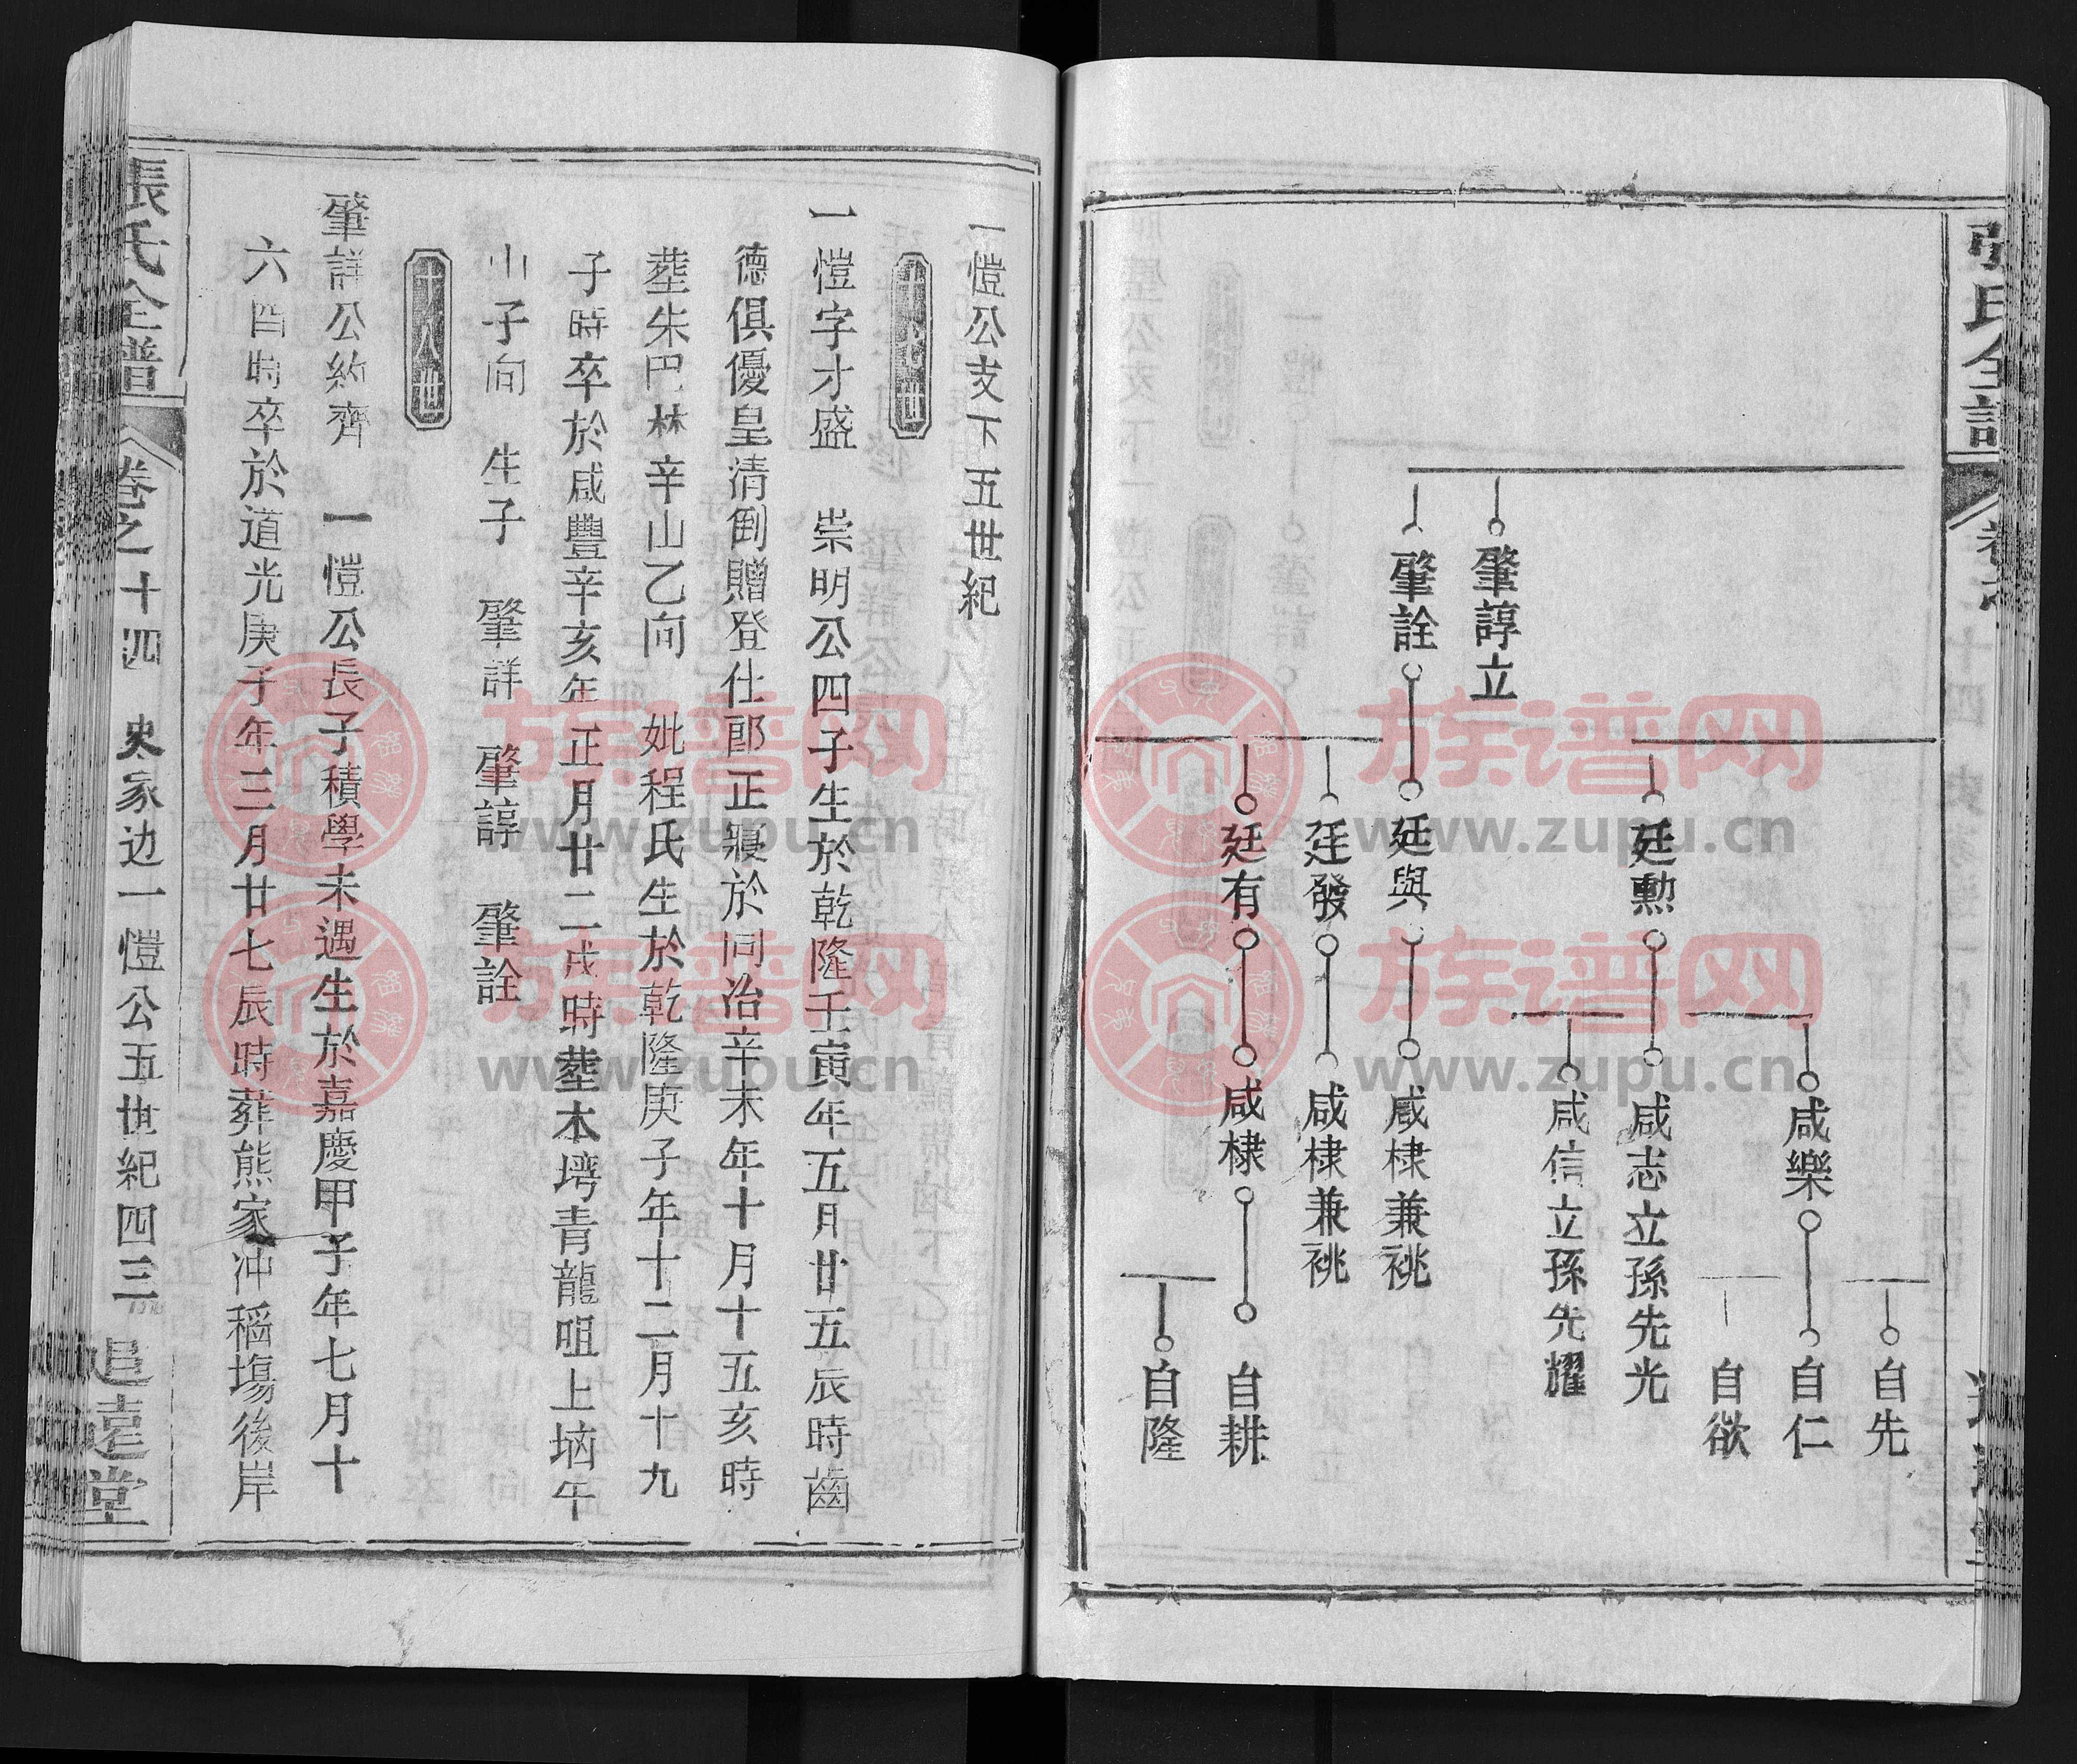 張氏全譜
肇諄立
肇詮
廷勲
廷與
廷發
廷有
咸樂
咸志立孫先光
咸信立孫先耀
咸棣兼祧
咸棣兼祧
咸棣
自先
自仁
自欲
自耕
自隆
一愷公支下五世紀
十七世
一愷字才盛 崇明公四子生於乾隆壬寅年五月廿五辰時齒
德俱優皇清例贈登仕郎正寢於同治辛未年十月十五亥時
塟朱巴林辛山乙向 妣程氏生於乾隆庚子年十二月十九
子時卒於咸豐辛亥年正月廿二戌時塟本塆青龍咀上垴午
山子向 生子 肇詳 肇諄 肇詮
十八世
肇詳公約齊 一愷公長子積學未遇生於嘉慶甲子年七月十
六酉時卒於道光庚子年三月廿七辰時葬熊家冲稻塲後岸
張氏全譜 卷之十四 史家边一愷公五世紀四三 追遠堂
族谱网
www.zupu.cn
族谱网
www.zupu.cn
族谱网
www.zupu.cn
族谱网
www.zupu.cn